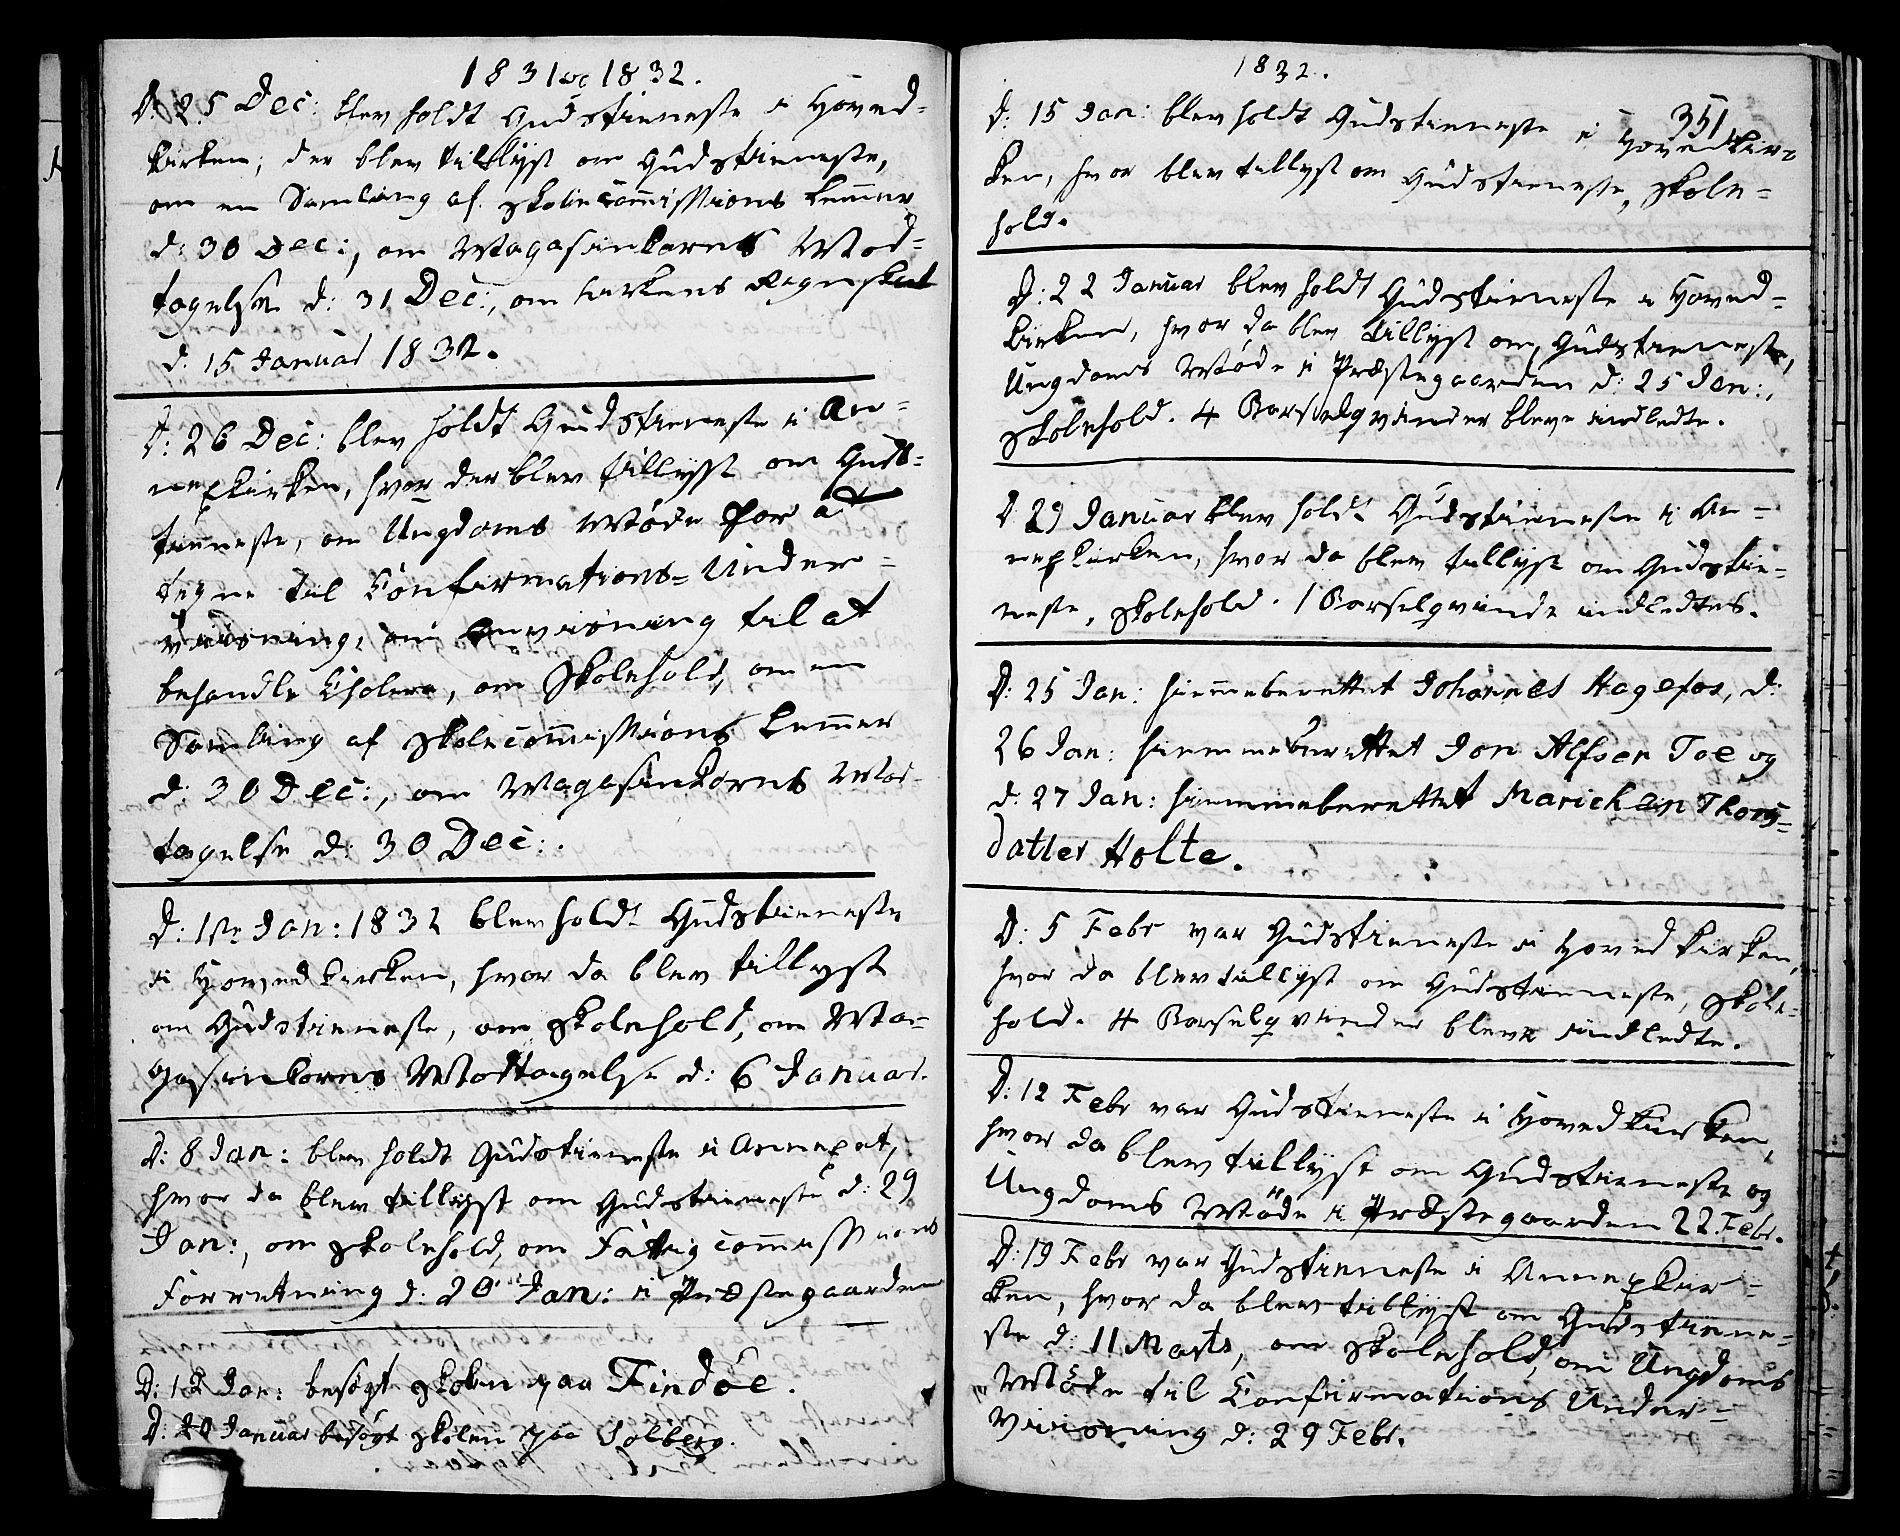 1831 og 1832.
D. 25 Dec: blev holdt Gudstieneste i Hoved-
kirken, der blev tillyst om Gudstieneste,
om en Samling af Skolecommissions Lemmer
d: 30 Dec:, om Magasinkornets Mod-
tagelse d: 31 Dec:, om Kirkens Regnskab
d. 15 Januar 1832.
D: 26 Dec: blev holdt Gudstieneste i An-
nexkirken, hvor der blev tillyst om Guds-
tieneste, om Ungdoms Møde for at
tegne til Confirmations-Under-
viisning, om Anviisning til at
behandle Cholera, om Skolehold, om en
Samling af Skolecommissions Lemmer
d: 30 Dec:, om Magasinkornets Mod-
tagelse d: 30 Dec:.
D: 1ste Jan: 1832 blev holdt Gudstieneste
i Hovedkirken, hvor da blev tillyst
om Gudstieneste, om Skolehold, om Ma-
gasinkorns Modtagelse d: 6 Januar.
D: 8 Jan: blev holdt Gudstieneste i Annexet,
hvor da blev tillyst om Gudstieneste d: 29
Jan:, om Skolehold, om Fattigcommissions
Forretning d: 20 Jan: i Præstegaarden
D: 12 Jan: besøgt Skolen paa Findøe.
D. 20 Januar besøgt Skolen paa Solberg.
1832.
351
D: 15 Jan: blev holdt Gudstieneste i Hovedkir-
ken, hvor blev tillyst om Gudstieneste, Skole-
hold.
D: 22 Januar blev holdt Gudstieneste i Hoved-
kirken, hvor da blev tillyst om Gudstieneste,
Ungdoms Møde i Præstegaarden d: 25 Jan:,
Skolehold. 4 Barselqvinder bleve indledte.
D 29 Januar blev holdt Gudstieneste i An-
nexkirken, hvor da blev tillyst om Gudstie-
neste, Skolehold. 1 Barselqvinde indledtes.
D: 25 Jan: hiemmeberettet Johannes Hagefos, d:
26 Jan: hiemmeberettet Jon Alfsen Toe og
d: 27 Jan: hiemmeberettet Marichen Thors-
datter Holte.
D: 5 Febr var Gudstieneste i Hovedkirken,
hvor da blev tillyst om Gudstieneste, Skole-
hold. 4 Barselqvinder bleve indledte.
D: 12 Febr var Gudstieneste i Hovedkirken,
hvor da blev tillyst om Gudstieneste og
Ungdoms Møde i Præstegaarden 22 Febr.
D: 19 Febr var Gudstieneste i Annexkir-
ken, hvor da blev tillyst om Gudstiene-
ste d: 11 Marts, om Skolehold, om Ungdoms
Møde til Confirmations Under-
viisning d: 29 Febr.